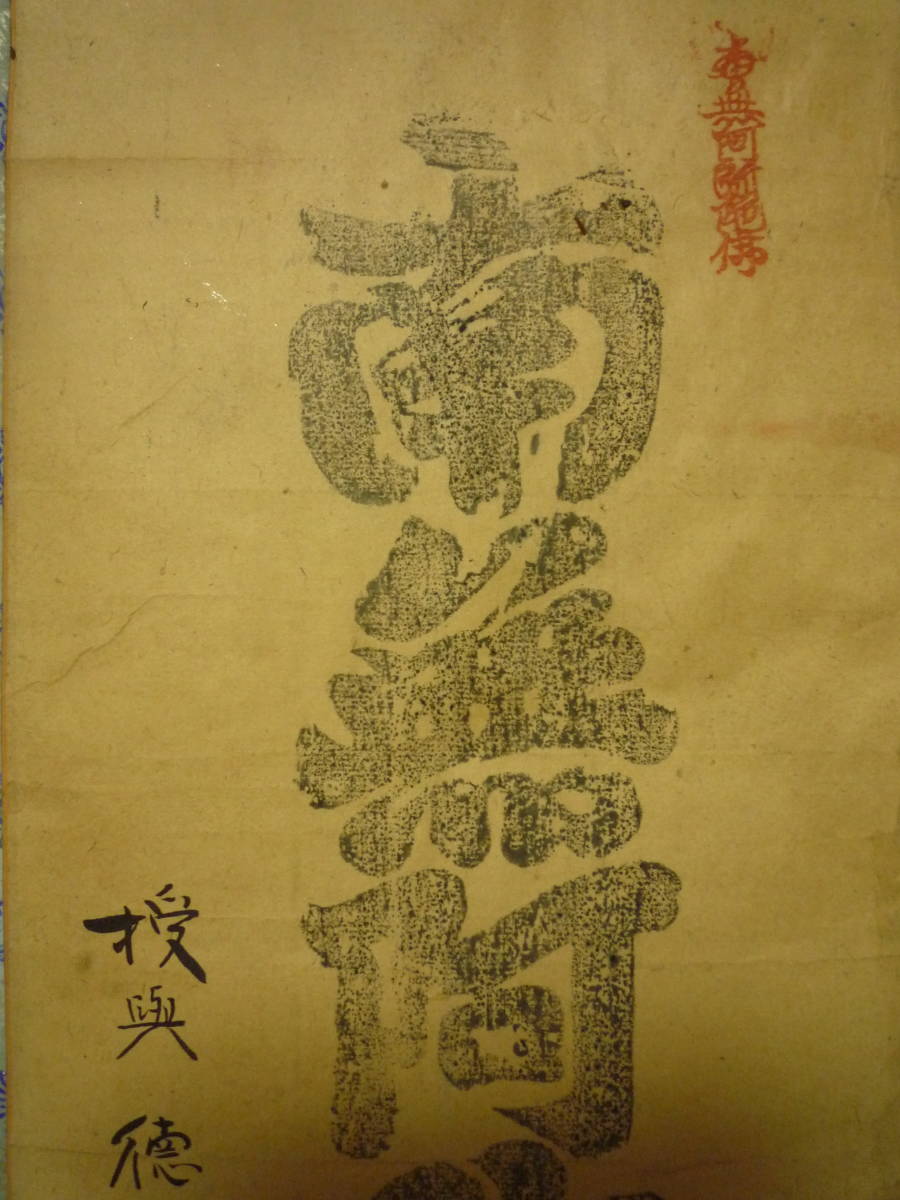 南無阿弥陀佛
南無阿
授與 德